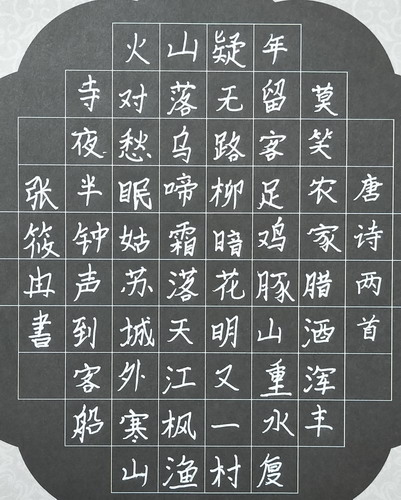 唐诗两首
莫笑农家腊酒浑丰
年留客足鸡豚山重水复
疑无路柳暗花明又一村
山落乌啼霜落天江枫渔
火对愁眠姑苏城外寒山
寺夜半钟声到客船
张筱冉書